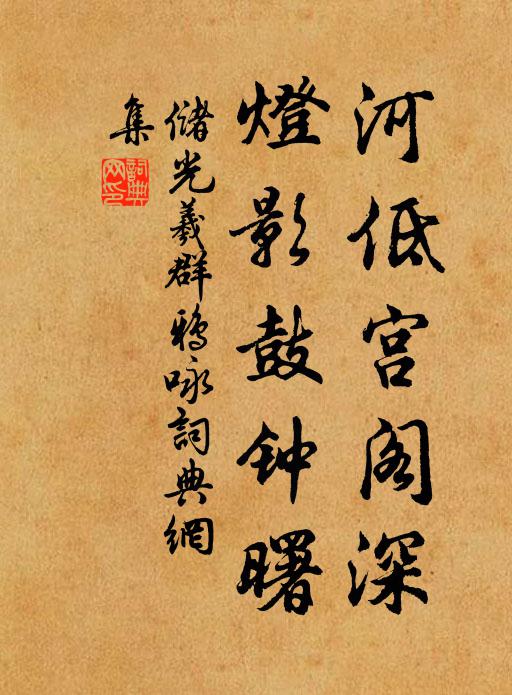 河低宫阁深
燈影鼓钟曙
儲光羲群鴉咏詞典網
集
詞典
网印